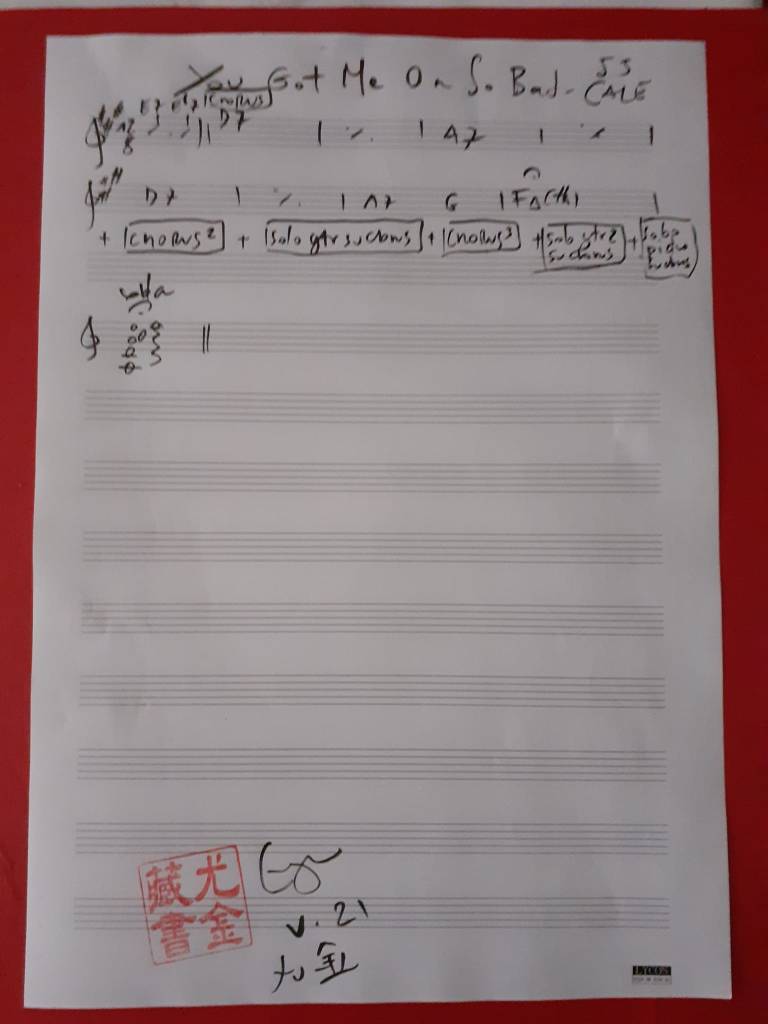 You Got Me On So Bad - JJ CALE
A7 E7 CHORUS D7 | ٪ | A7 | ٪ |
D7 | ٪ | A7 G | F |
+ CHORUS 2 + solo gtr su chorus + CHORUS 3 + solo gtr 2 su chorus + solo piano su chorus
v. 21
尤金
尤金
藏書
LYCOS